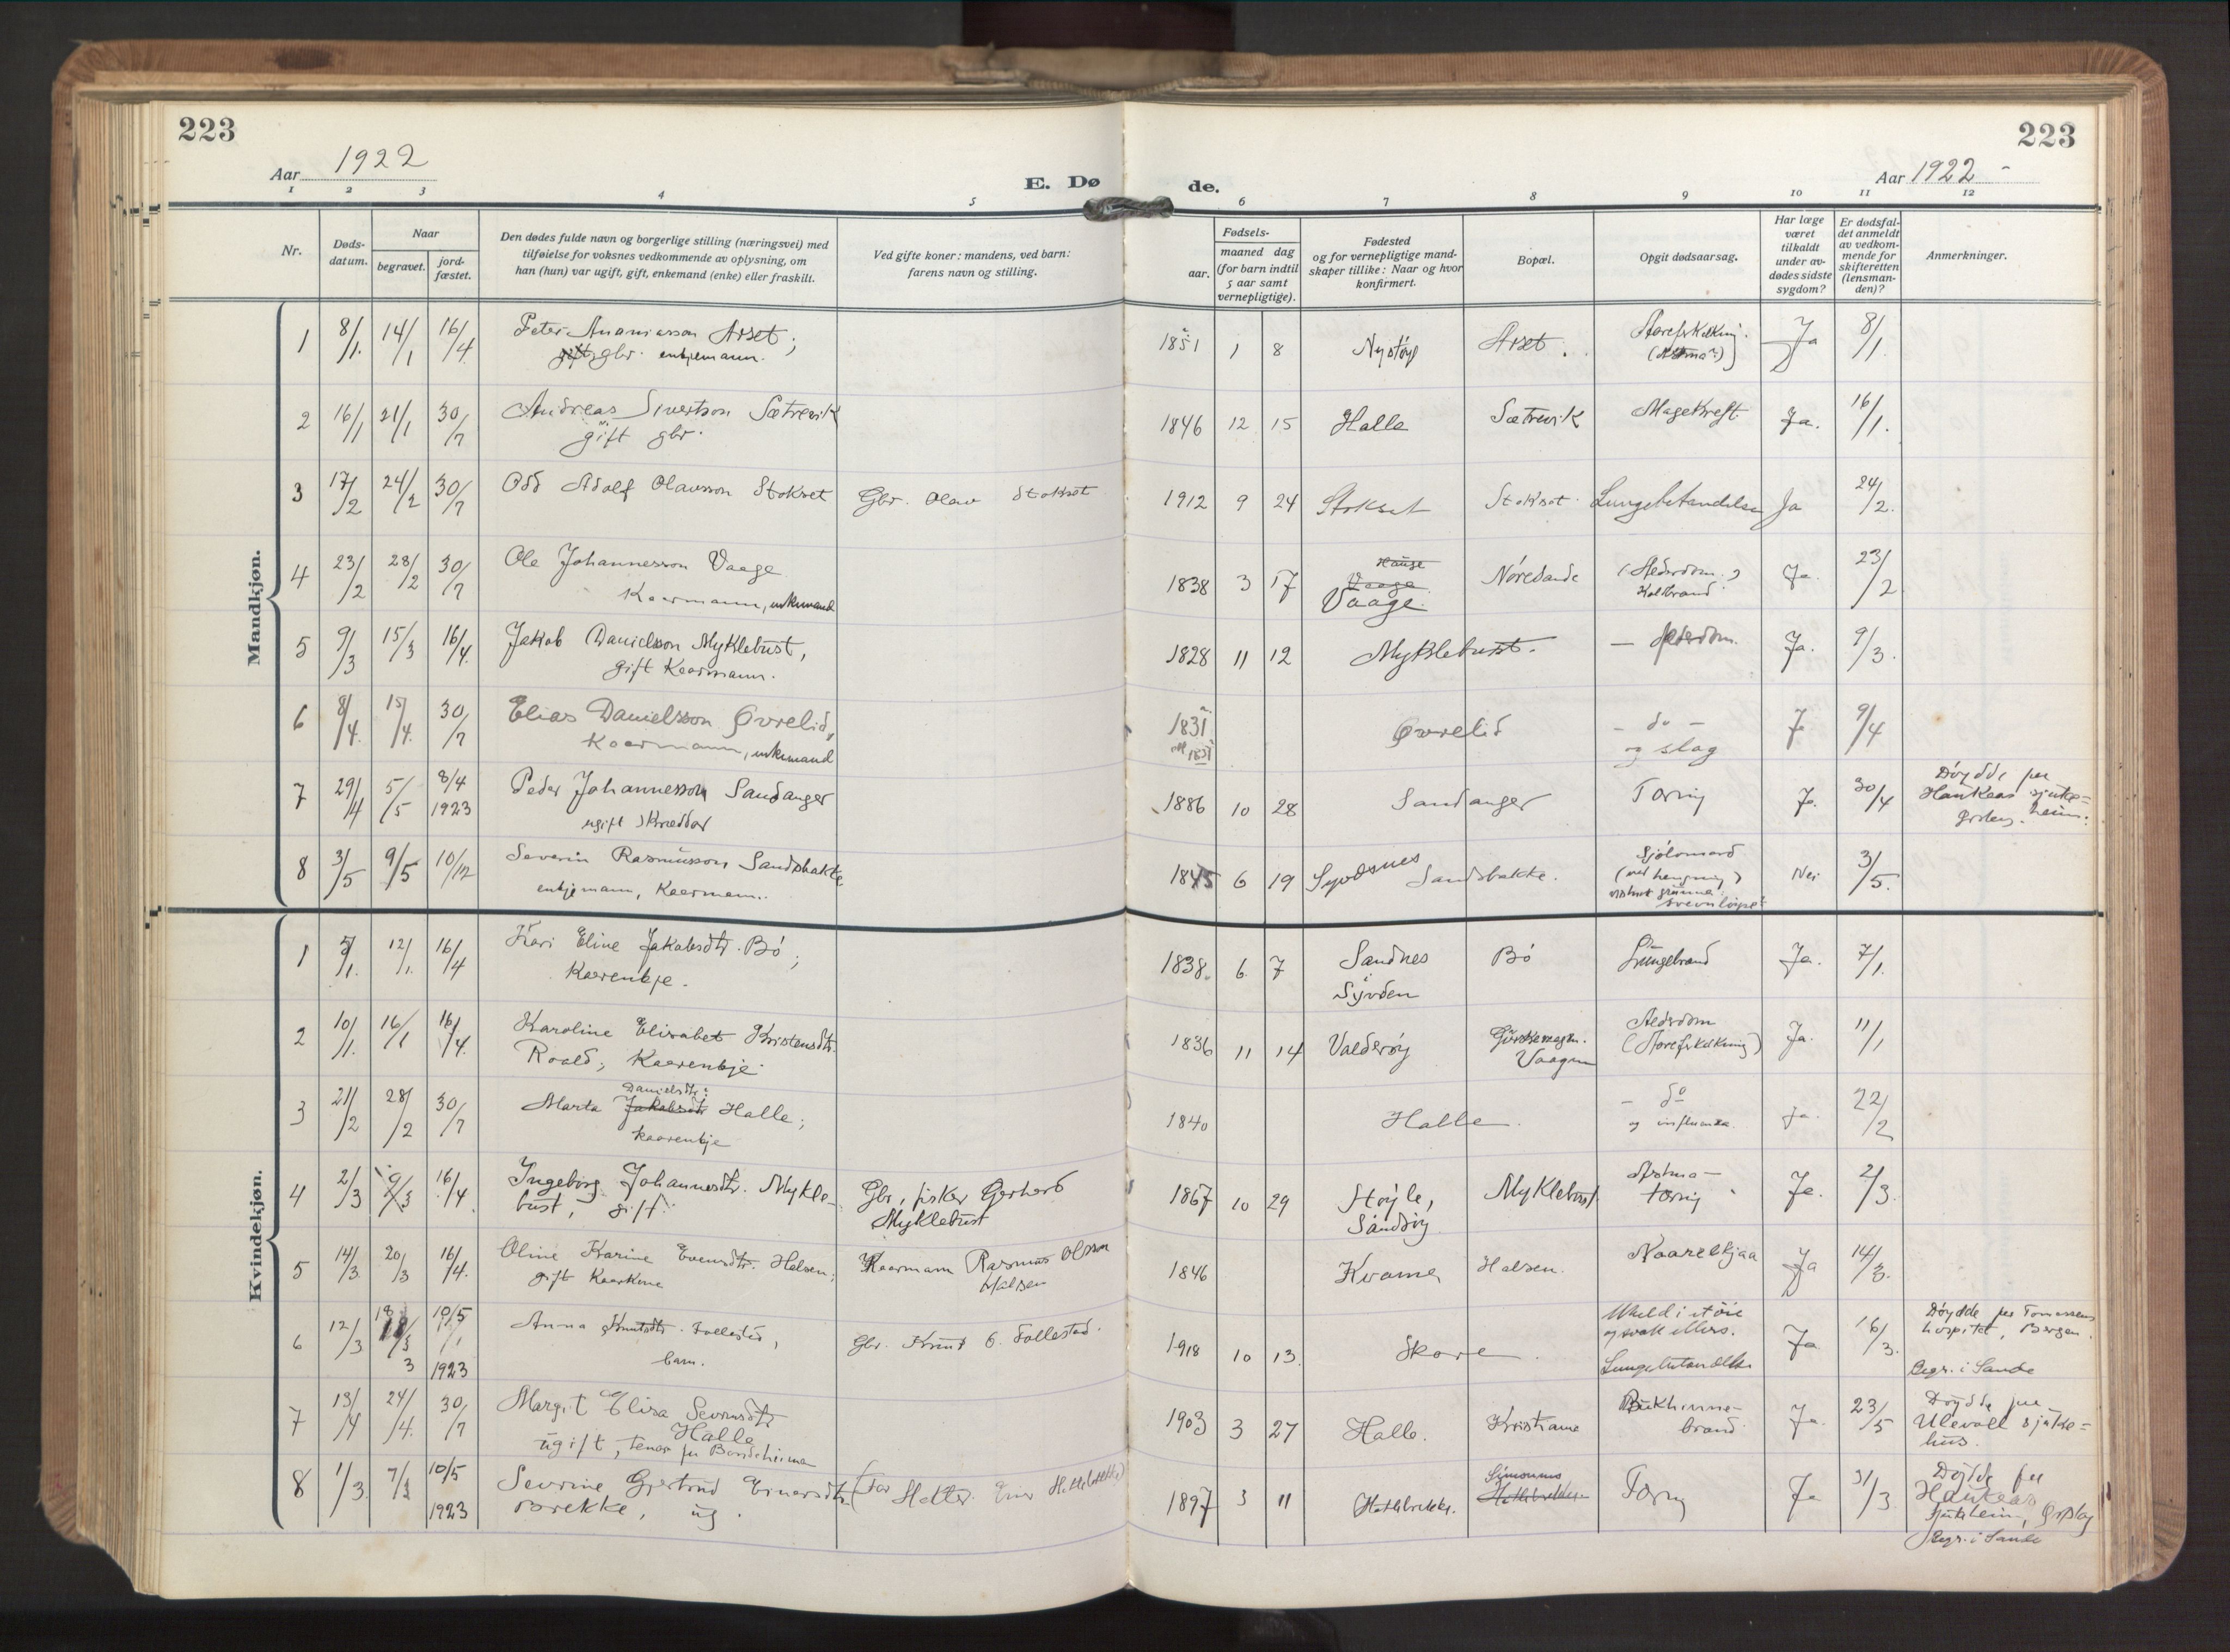 223
223
Aar 1922
E. Dø
de.
Aar 1922 -
1 2 3 4 5 6 7 8 9 10 11 12
Nr.
Døds-
datum.
Naar
begravet.
jord-
fæstet.
Den dødes fulde navn og borgerlige stilling (næringsvei) med
tilføielse for voksnes vedkommende av oplysning, om
han (hun) var ugift, gift, enkemand (enke) eller fraskilt.
Ved gifte koner: mandens, ved barn:
farens navn og stilling.
Fødsels-
aar.
maaned dag
(for barn indtil
5 aar samt
vernepligtige).
Fødested
og for vernepligtige mand-
skaper tillike: Naar og hvor
konfirmert.
Bopæl.
Opgit dødsaarsag.
Har læge
været
tilkaldt
under av-
dødes sidste
sygdom?
Er dødsfal-
det anmeldt
av vedkom-
mende for
skifteretten
(lensman-
den)?
Anmerkninger.
Mandkjøn.
1 8/1. 14/1 16/4 Peter Ananiasson Arset;
gift gbr. enkjemann.
1851 1 8 Nystøyl Arset. Aareforkalkning. Ja 8/1
2 16/1 21/1 30/7 Andreas Sivertson Sætrevik
gift gbr.
1846 12 15 Halle Sætrevik Magekreft Ja. 16/1.
3 17/2 24/2 30/7 Odd Adolf Olavsson Stokset Gbr. Olav Stokset
1912 9 24 Stokset Stokset Lungebetændelse Ja 24/2.
4 23/2 28/2 30/7 Ole Johannesson Vaage
Kaarmann, enkemand
1838 3 17 Hauge
Vaage
Vaage. Nøresande (Alderdom.)
Kolbrand Ja. 23/2
5 9/3 15/3 16/4. Jakob Danielsson Myklebust,
gift Kaarmann.
1828 11 12 Myklebust. — Alderdom. Ja. 9/3.
6 8/4. 15/4. 30/7 Elias Danielsson Øvrelid,
Kaarmann, enkemand
1831 Øvrelid - do -
og slag J 9/4
7 29/4 5/5 8/4
1923 Peder Johannesson Sandanger
ugift skræddar
1886 10 28 Sandanger Tæring J. 30/4 Døydde paa
Haukeas sjuke-
heim.
8 3/5 9/5 10/12 Severin Rasmusson Sandsbakke
enkjemann, Kaarmann.
1845 6 19 Syvdsnes Sandsbakke. Sjølvmord
(ved hengning)
Nei 3/5.
Kvindekjøn.
1 5/1. 12/1. 16/4 Kari Eline Jakobsdtr. Bø;
Kaarenkje.
1838. 6. 7 Sandnes
Syvden Bø Lungebrand Ja. 7/1.
2 10/1. 16/1 16/4. Karoline Elisabet Kristensdtr.
Roald; Kaarenkje.
1836 11 14 Valderøy Vaagen Alderdom
(Aareforkalkning) Ja. 11/1
3 21/2 28/2 30/7 Danielsdtr.
Marta Jakobsdtr Halle;
kaarenkje
1840 Halle. - do
og influenza. Ja. 22/2
4 2/3 9/3 16/4 Ingeborg Johannesdtr. Mykle-
bust, gift. Gbr, fisker Gerhard
Myklebust
1867 10 29 Støyle,
Sandsøy Myklebust Astma —
tæring Ja. 2/3.
5 14/3 20/3 16/4. Oline Karine Evensdtr. Halsen;
gift Kaarkone Kaarmann Rasmus Olsson
Halsen
1846 Kvame Halsen. Naareskjaa Ja 14/3.
6 12/3 18/3 10/5
1923 Anna Knutsdtr. Follestad,
barn. Gbr. Knut O. Follestad.
1918 10 13. Skare
Lungebetændelse Ja 16/3. Døydde paa
hospital, Bergen.
Begr. i Sande
7 13/4 24/4. 30/7 Margit Elisa Severinsdtr
Halle
ugift,
1903 3 27 Halle. Kristiania Bukhinne-
brand Ja. 23/5 Døydde paa
Ulevoll sjuke-
hus.
8 1/3. 7/3 10/5
1923 Sevrine Gjertrud Einarsdtr.
ug. (Far
1897 3 11 Hattebrekke. Tæring Ja 31/3 Døydde paa
Haukeas
sjukeheim,
Begr. i Sande